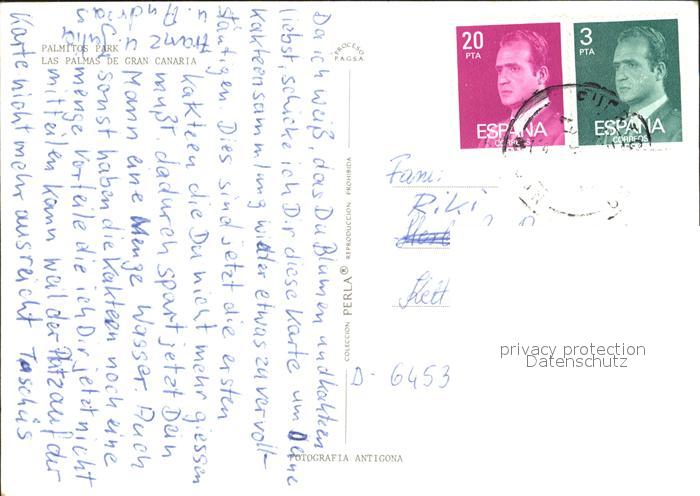 PALMITOS PARK
LAS PALMAS DE GRAN CANARIA
Da ich weiß, das Du Blumen und kakteen
liebst, schicke ich Dir diese Karte um Deine
kakteensammlung wieder etwas zu vervoll-
ständigen. Dies sind jetzt die ersten
kakteen die Du nicht mehr giessen
mußt. dadurch spart jetzt Dein
Mann eine Menge Wasser. Auch
sonst haben die Kakteen noch eine
menge Vorteile die ich Dir jetzt nicht
mitteilen kann weil der Platz auf der
Karte nicht mehr ausreicht Tschüs
PROCESO
P.A.G.S.A.
COLECCION PERLA® REPRODUCCION PROHIBIDA
FOTOGRAFIA ANTIGONA
20
PTA
ESPAÑA
CORREOS
3
PTA
ESPAÑA
CORREOS
Fam.
D- 6453
privacy protection
Datenschutz